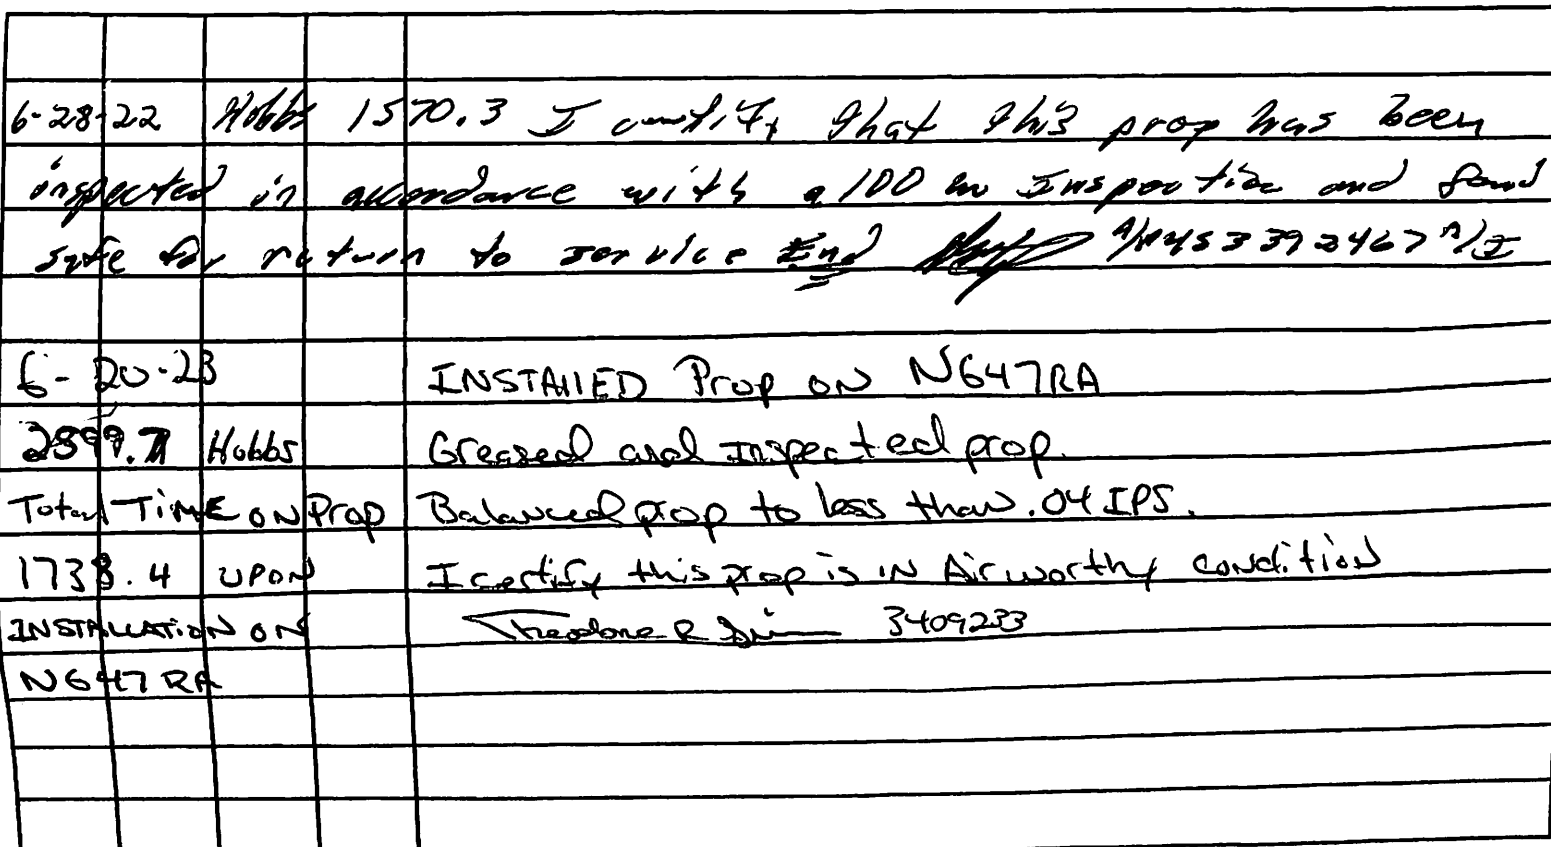 6-28-22 Hobbs 1570.3 I certify that this prop has been
inspected in accordance with a 100 hr Inspection and found
safe for return to service End A/P 453392467 A/I
6-20-23 INSTAllED Prop ON N647RA
2899.7 Hobbs Greased and Inspected prop.
Total TIME ON Prop Balanced prop to less than .04 IPS.
1738.4 UPON I certify this prop is IN Airworthy condition
INSTALLATION ON Theodore R 3409233
N647RA